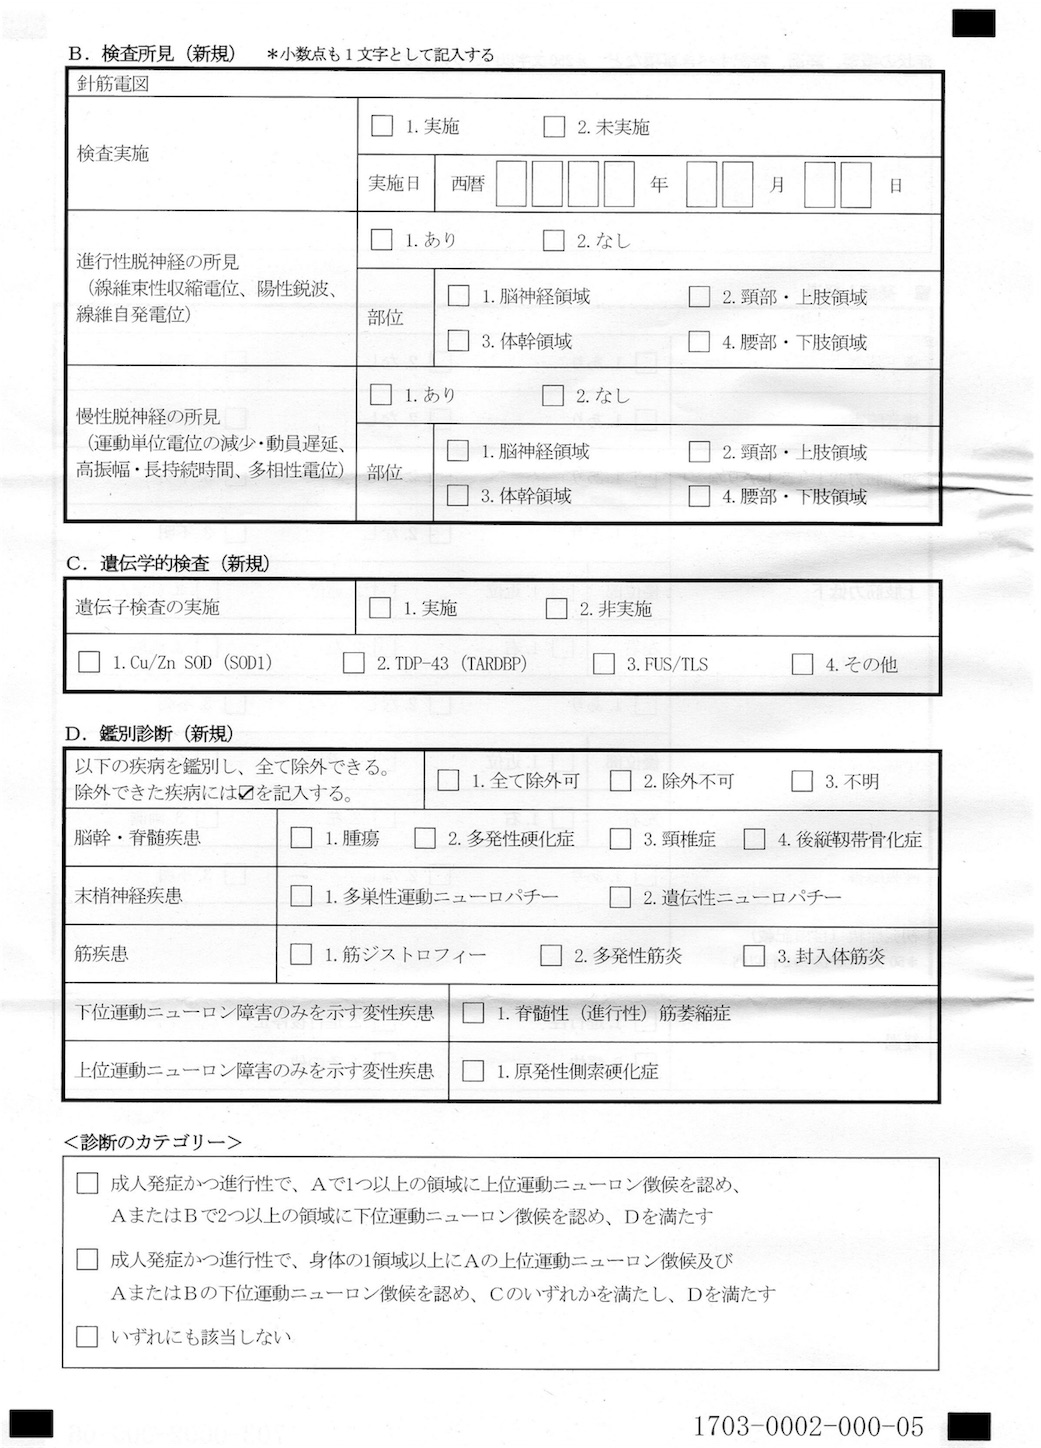 B．検査所見（新規） ＊小数点も1文字として記入する
針筋電図
検査実施
□ 1.実施 □ 2.未実施
実施日 西暦 □□□□ 年 □□ 月 □□ 日
進行性脱神経の所見
（線維束性収縮電位、陽性鋭波、
線維自発電位）
□ 1.あり □ 2.なし
部位
□ 1.脳神経領域 □ 2.頸部・上肢領域
□ 3.体幹領域 □ 4.腰部・下肢領域
慢性脱神経の所見
（運動単位電位の減少・動員遅延、
高振幅・長持続時間、多相性電位）
□ 1.あり □ 2.なし
部位
□ 1.脳神経領域 □ 2.頸部・上肢領域
□ 3.体幹領域 □ 4.腰部・下肢領域
C．遺伝学的検査（新規）
遺伝子検査の実施 □ 1.実施 □ 2.非実施
□ 1.Cu/Zn SOD（SOD1） □ 2.TDP-43（TARDBP） □ 3.FUS/TLS □ 4.その他
D．鑑別診断（新規）
以下の疾病を鑑別し、全て除外できる。
除外できた疾病には☑を記入する。
□ 1.全て除外可 □ 2.除外不可 □ 3.不明
脳幹・脊髄疾患 □ 1.腫瘍 □ 2.多発性硬化症 □ 3.頸椎症 □ 4.後縦靭帯骨化症
末梢神経疾患 □ 1.多巣性運動ニューロパチー □ 2.遺伝性ニューロパチー
筋疾患 □ 1.筋ジストロフィー □ 2.多発性筋炎 □ 3.封入体筋炎
下位運動ニューロン障害のみを示す変性疾患 □ 1.脊髄性（進行性）筋萎縮症
上位運動ニューロン障害のみを示す変性疾患 □ 1.原発性側索硬化症
＜診断のカテゴリー＞
□ 成人発症かつ進行性で、Aで1つ以上の領域に上位運動ニューロン徴候を認め、
AまたはBで2つ以上の領域に下位運動ニューロン徴候を認め、Dを満たす
□ 成人発症かつ進行性で、身体の1領域以上にAの上位運動ニューロン徴候及び
AまたはBの下位運動ニューロン徴候を認め、Cのいずれかを満たし、Dを満たす
□ いずれにも該当しない
1703-0002-000-05